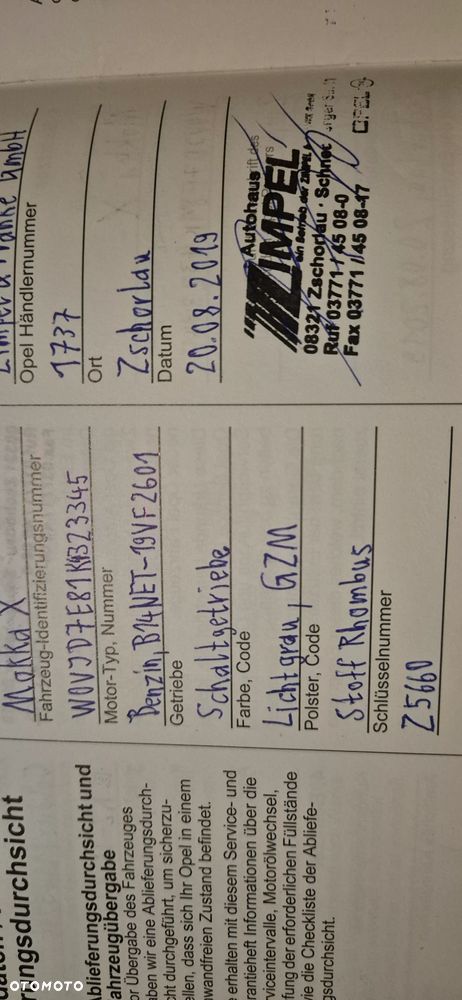 rungsdurchsicht
Ablieferungsdurchsicht und
Fahrzeugübergabe
or Übergabe des Fahrzeuges
aben wir eine Ablieferungsdurch-
cht durchgeführt, um sicherzu-
ellen, dass sich Ihr Opel in einem
nwandfreien Zustand befindet.
e erhalten mit diesem Service- und
rantieheft Informationen über die
rviceintervalle, Motorölwechsel,
ung der erforderlichen Füllstände
ie die Checkliste der Abliefe-
gsdurchsicht.
Mokka X
Fahrzeug-Identifizierungsnummer
W0VJD7E81K4323345
Motor-Typ, Nummer
Benzin, B14NET-19VF2601
Getriebe
Schaltgetriebe
Farbe, Code
Lichtgrau, GZM
Polster, Code
Stoff Rhombus
Schlüsselnummer
Z5660
GmbH
Opel Händlernummer
1737
Ort
Zschorlau
Datum
20.08.2019
Autohaus
ZIMPEL
ein Betrieb der
08321 Zschorlau · Schne
Ruf 03771 / 45 08-0
Fax 03771 / 45 08-17
OPEL
OTOMOTO